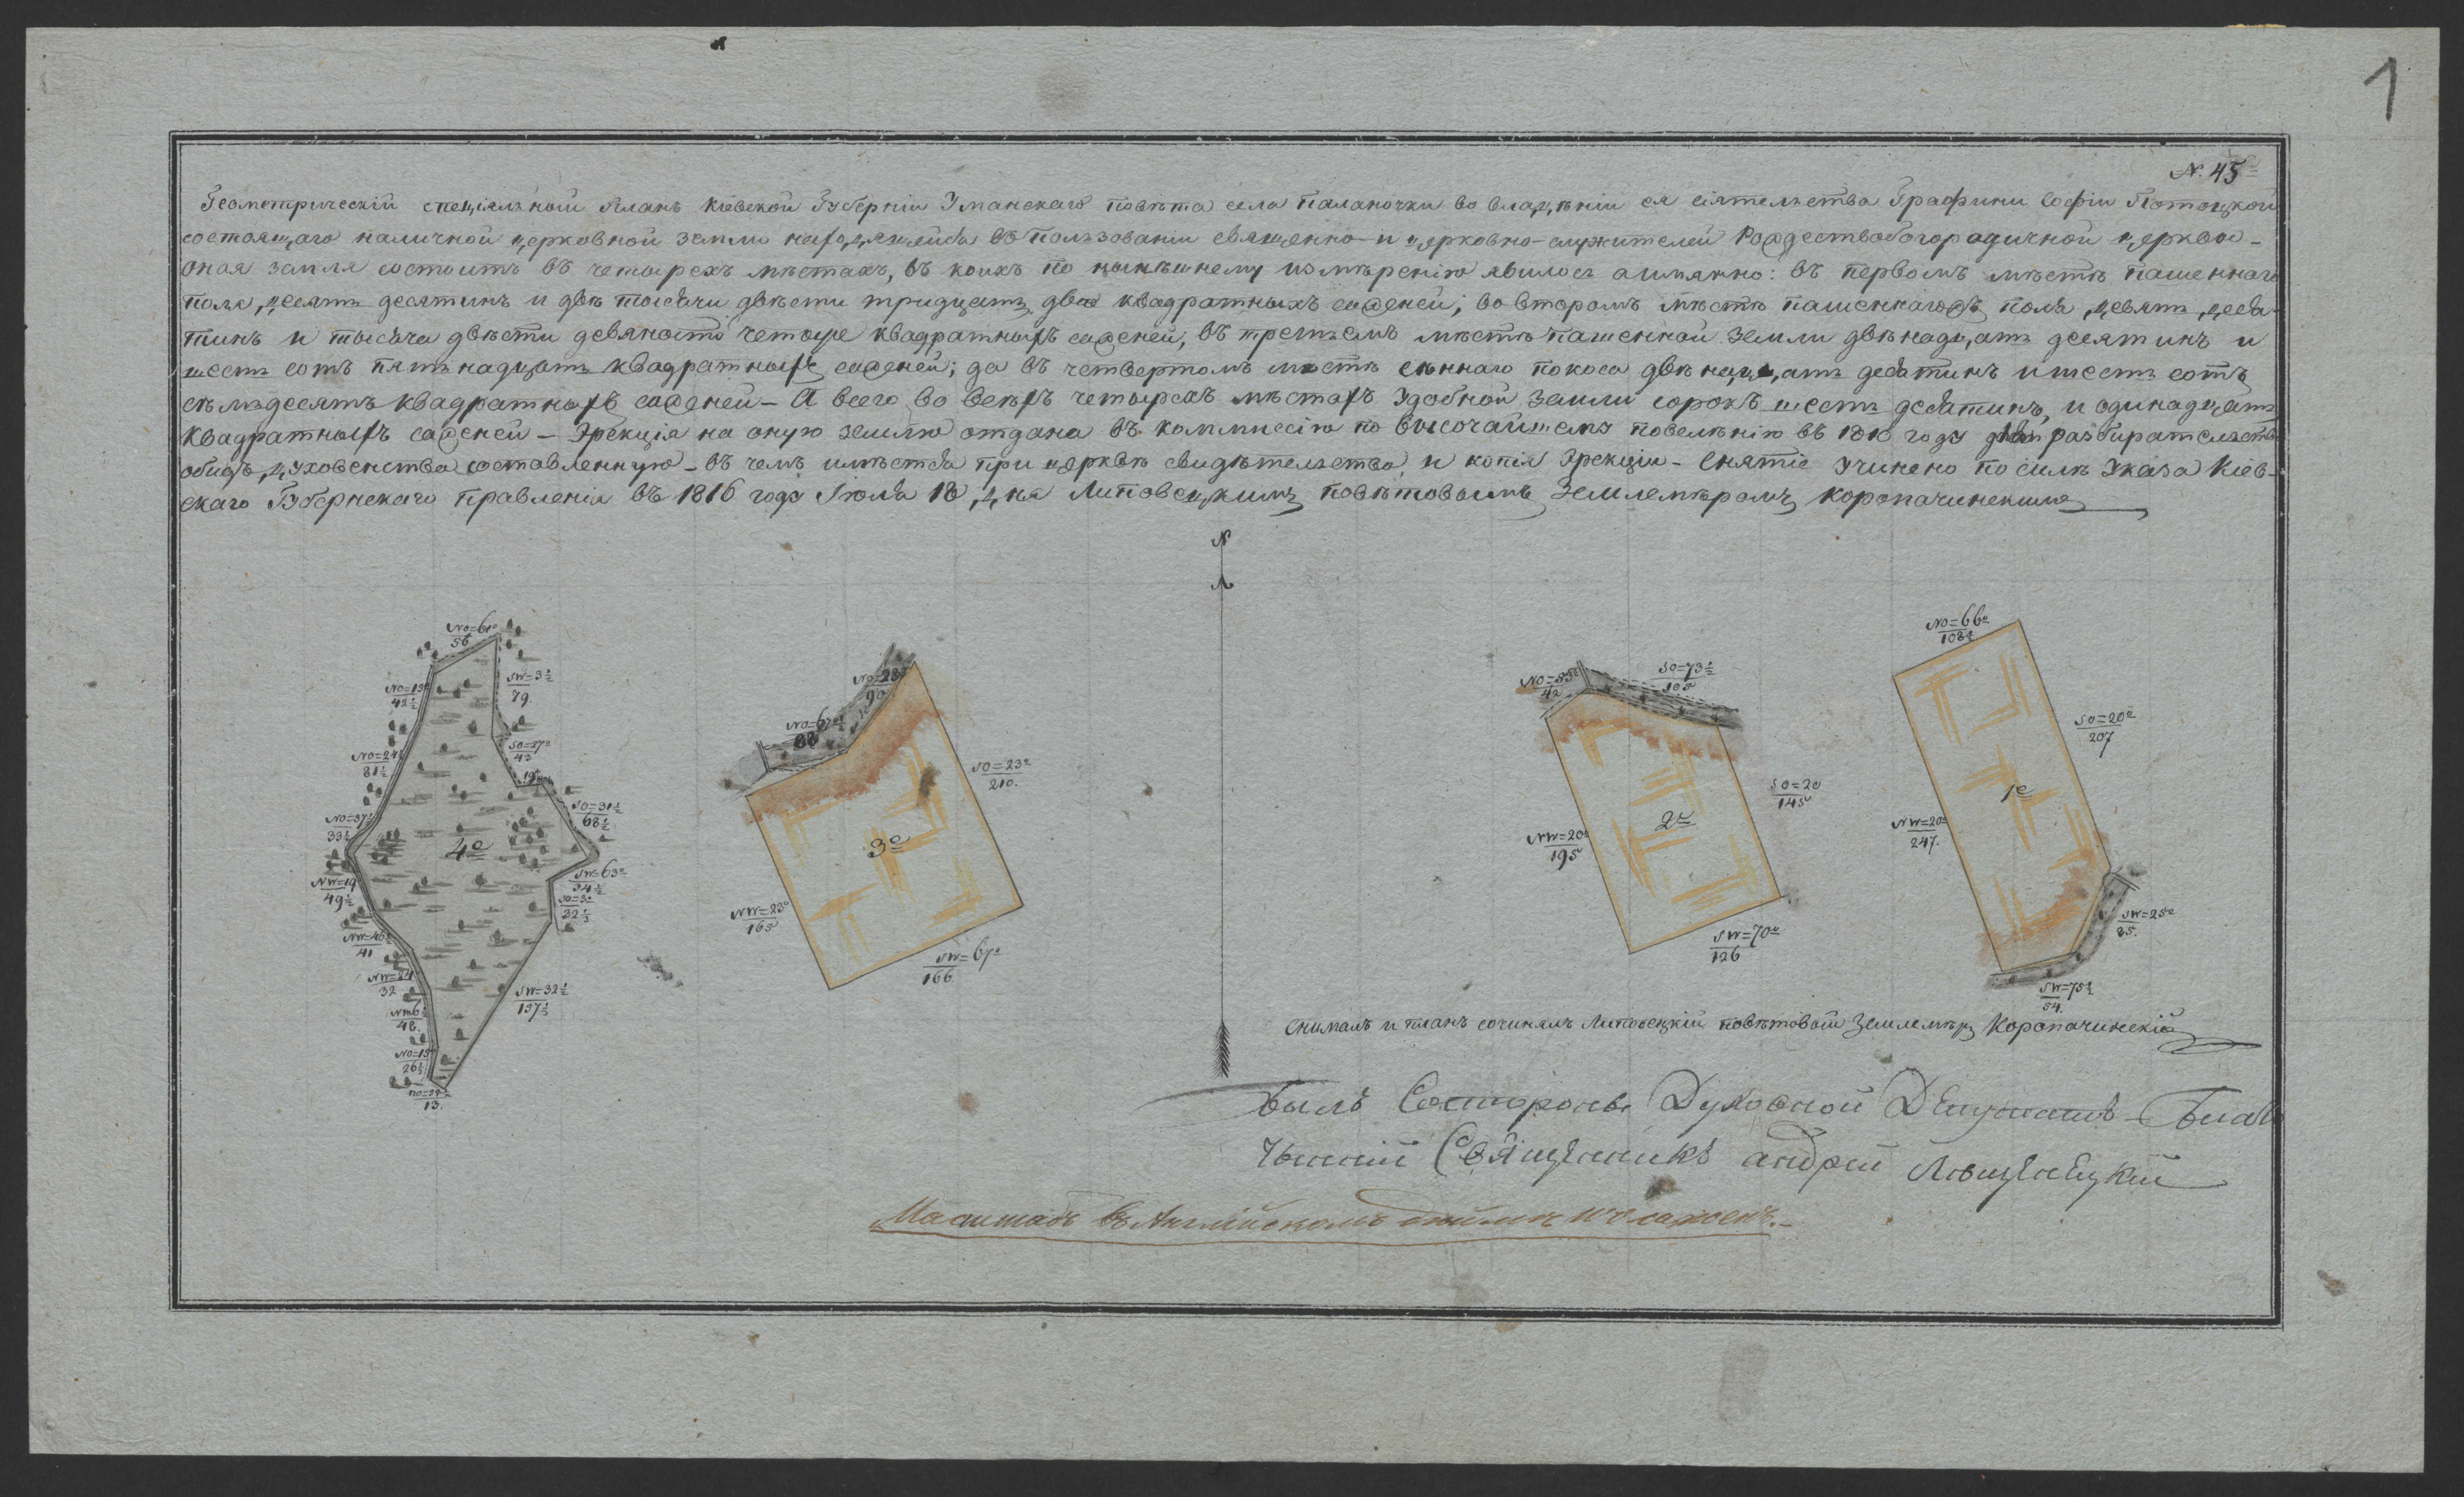 1
№ 45
Геометрическій спеціяльной Планъ Кіевской Губерніи Уманскаго повѣта села Паланочки во владѣніи ея сіятельства Графини Софіи Потоцкой
состоящаго наличной церковной земли находящейся въ пользованіи священно- и церковно-служителей Рождествобогородичной церкви -
оная земля состоитъ въ четырехъ мѣстахъ, въ коихъ по нынѣшнему измѣренію явилось аимянно: въ первомъ мѣстѣ пашеннаго
поля, десять десятинъ и двѣ тысячи двѣсти тридцать два квадратныхъ саженей; во второмъ мѣстѣ пашеннагожъ поля, девять деся-
тинъ и тысяча двѣсти девяносто четыре квадратныхъ саженей, въ третьемъ мѣстѣ пашенной земли двѣнадцать десятинъ и
шесть сотъ пятьнадцать квадратныхъ саженей; да въ четвертомъ мѣстѣ сѣннаго покоса двѣнадцать десятинъ и шесть сотъ
семьдесятъ квадратныхъ саженей - А всего во всѣхъ четырехъ мѣстахъ удобной земли сорокъ шесть десятинъ, и одинадцать
квадратныхъ саженей - Эрекція на оную землю отдана въ коммиссію по высочайшему повелѣнію въ 1810 году для разбирательства
обидъ духовенства составленную - въ чемъ имѣется при церквѣ свидѣтельство и копія Эрекціи - Снятіе учинено по силѣ Указа Кіев-
скаго Губернскаго правленія въ 1816 году Іюля 18 дня Липовецкимъ повѣтовымъ Землемѣромъ Коропачинскимъ
N
NO=61º
56
NO=13º
42½
SW=3½
79
NO=24½
81½
SO=27º
43
19
NO=37½
33½
SO=31½
68½
4е
NW=19
49½
SW=63º
34½
SO=3º
32½
NW=46½
41
NW=24
32
SW=32½
137½
NW=6½
48
NO=15º
26½
13
NO=28º
90
NO=67º½
88
SO=23º
210
3е
NW=23º
165
SW=67º
166
NO=55º
42
SO=73½
105
SO=20
145
2е
NW=20º
195
SW=70º
126
NO=66º
108½
SO=20º
207
1е
NW=20º
247
SW=25º
85
SW=75½
54
Снималъ и планъ сочинялъ Липовецкій повѣтовой Землемѣръ Коропачинскій
Былъ Состороны Духовной Депутатъ - Благо
чынній Священикъ андрей
Масштабъ въ Англійскомъ дюймѣ 100 саженъ. -